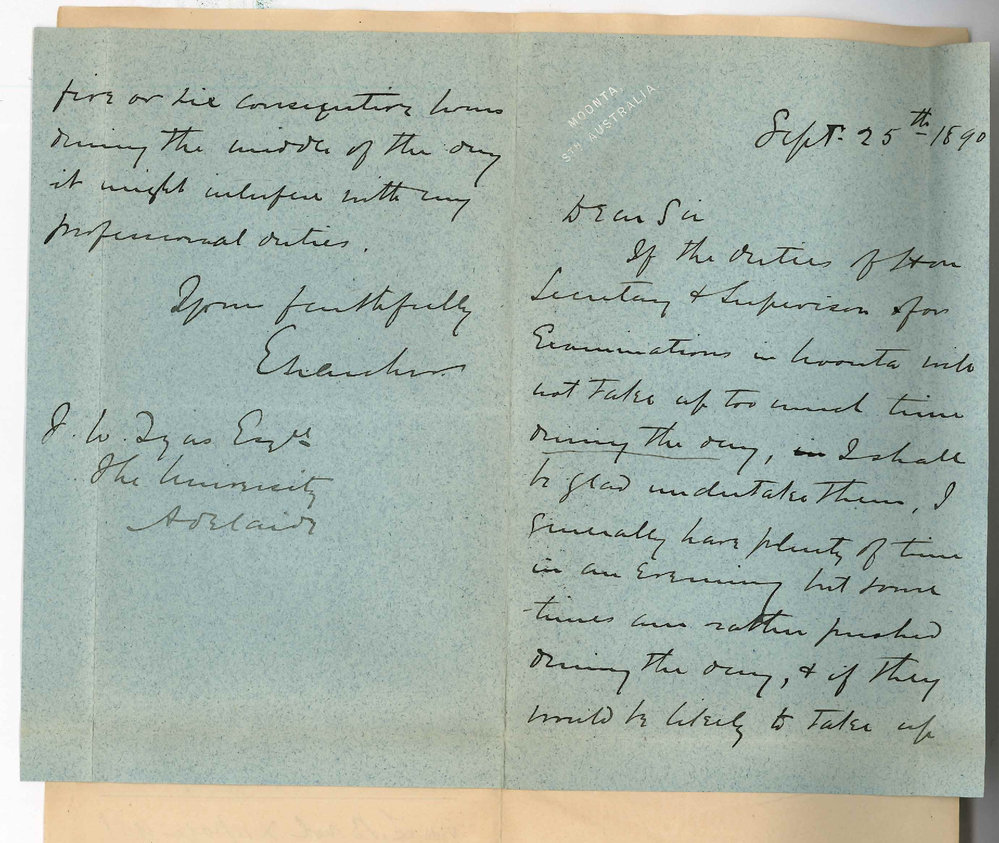 MOONTA,
STH AUSTRALIA
Sept. 25th 1890
Dear Sir
If the duties of Hon
Secretary & Supervisor for
Examinations in Moonta will
not take up too much time
during the day, in I shall
be glad undertake them, I
generally have plenty of time
in an evening but some
times am rather pushed
during the day, & if they
would be likely to take up
five or six consequtive hours
during the middle of the day
it might interfere with my
professional duties.
Yours faithfully
J. W. Tyas Esqre
The University
Adelaide